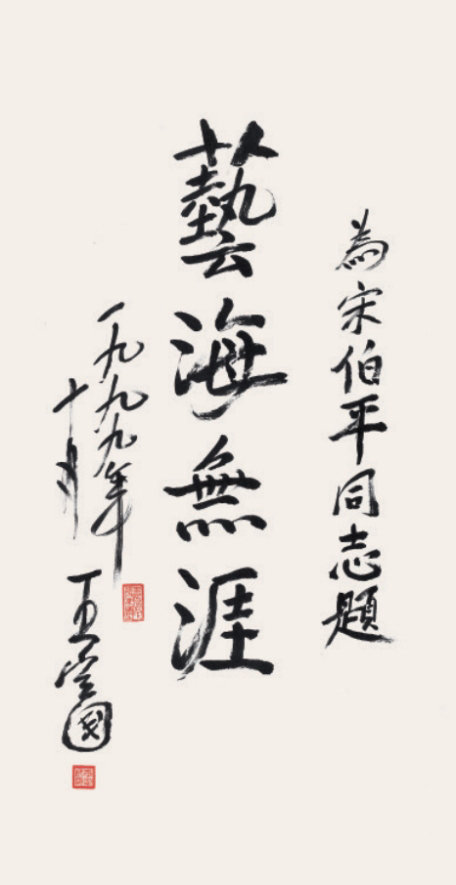 為宋伯平同志題
藝海無涯
一九九九年
十月
王定國